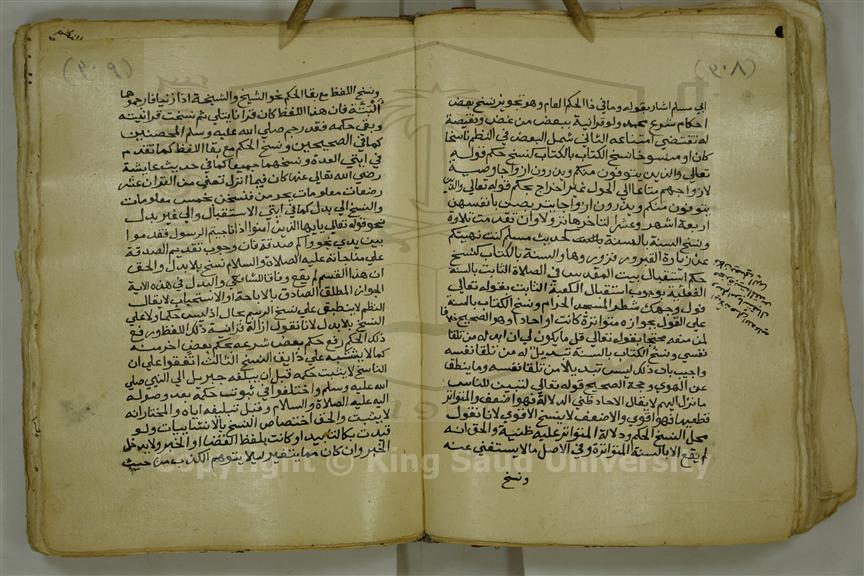 (٣٠٨)
ابي مسلم اشار بقوله وما في ذا الحكم العام وهو تجويز نسخ بعض
احكام شرع محمد ولو قرانية ببعض من غض ونقيصة
له تقتضي امتناعه الثاني شمل البعض في النظم ناسخا
كان او منسوخا نسخ الكتاب بالكتاب كنسخ حكم قوله
تعالى والذين يتوفون منكم ويذرون ازواجا وصية
لازواجهم متاعا الى الحول غير اخراج بحكم قوله تعالى والذين
يتوفون منكم ويذرون ازواجا يتربصن بانفسهن
اربعة اشهر وعشرا لتاخرها نزولا وان تقدمت تلاوة
ونسخ السنة بالسنة كحديث مسلم كنت نهيتكم
عن زيارة القبور فزوروها والسنة بالكتاب كنسخ
حكم استقبال بيت المقدس في الصلاة الثابت بالسنة
الفعلية بوجوب استقبال الكعبة الثابت بقوله تعالى
فول وجهك شطر المسجد الحرام ونسخ الكتاب بالسنة
على القول بجوازه متواترة كانت او احادا وهو الصحيح خلافا
لمن منعه محتجا بقوله تعالى قل ما يكون لي ان ابدله من تلقا
نفسي ونسخ الكتاب بالسنة تبديل له من تلقا نفسه
واجيب بان ذلك ليس تبديلا من تلقا نفسه وما ينطق
عن الهوى وحجة الصحيح قوله تعالى لتبين للناس
ما نزل اليهم لا يقال الاحاد ظني الدلالة فهو اضعف والمتواتر
قطعيها فهو اقوى والاضعف لا ينسخ الاقوى لانا نقول
محل النسخ الحكم ودلالة المتواتر عليه ظنية والحق انه
لم يقع الا بالسنة المتواترة وفي الاصل ما لا يستغنى عنه
ونسخ
(٣٠٩)
ونسخ اللفظ مع بقا الحكم نحو الشيخ والشيخة اذا زنيا فارجموهما
البتة فان هذا اللفظ كان قرانا يتلى ثم نسخت قرانيته
وبقي حكمه فقد رجم صلى الله عليه وسلم المحصنين
كما في الصحيحين ونسخ الحكم مع بقا اللفظ كما تقدم
في ايتي العدة ونسخهما جميعا كما في حديث عايشة
رضي الله تعالى عنها كان فيما انزل تعني من القران عشر
رضعات معلومات يحرمن فنسخن بخمس معلومات
والنسخ الى بدل كما في ايتي الاستقبال والى غير بدل
نحو قوله تعالى يايها الذين امنوا اذا ناجيتم الرسول فقدموا
بين يدي نجواكم صدقة فان وجوب تقديم الصدقة
على مناجاته عليه الصلاة والسلام نسخ بلا بدل والحق
ان هذا القسم لم يقع وفاقا للشافعي والبدل في هذه الاية
الجواز المطلق الصادق بالاباحة او الاستحباب لا يقال
النظم لا ينطبق على نسخ الرسم بحال اذ ليس حكما ولا على
النسخ بلا بدل لانا نقول ازالة قرانية ذلك اللفظ ورفع
ذلك الحكم رفع حكم بعض شرعه بحكم بعض اخر منه
كما لا يشتبه على ذايق النسخ الثالث اتفقوا على ان
الناسخ لا يثبت حكمه قبل ان يبلغه جبريل الى النبي صلى
الله عليه وسلم واختلفوا في ثبوت حكمه بعد وصوله
اليه عليه الصلاة والسلام وقبل تبليغه اياه والمختار انه
لا يثبت والحق اختصاص النسخ بالانشاييات ولو
قيدت بكالتابيد او كانت بلفظ القضا او الخبر ولا يدخل
الخبر وان كان مما يتغير ليلا يتوهم الكذب من حيث
Copyright © King Saud University